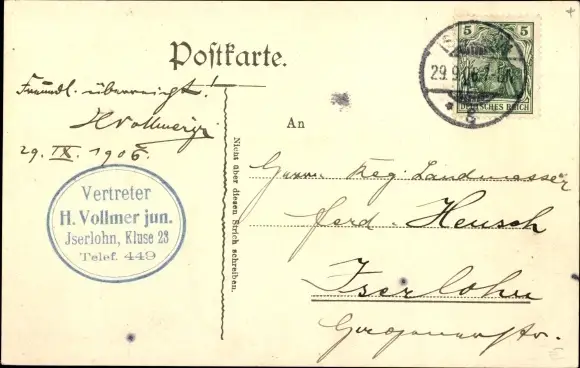 Postkarte.
Freundl. überreicht!
HVollmerjr
29. IX. 1906.
Vertreter
H. Vollmer jun.
Jserlohn, Kluse 23
Telef. 449
Nicht über diesen Strich schreiben.
5 5
DEUTSCHES REICH
29.9.06.
An
Herrn Reg. Landmesser
Ferd. Heusch
Iserlohn